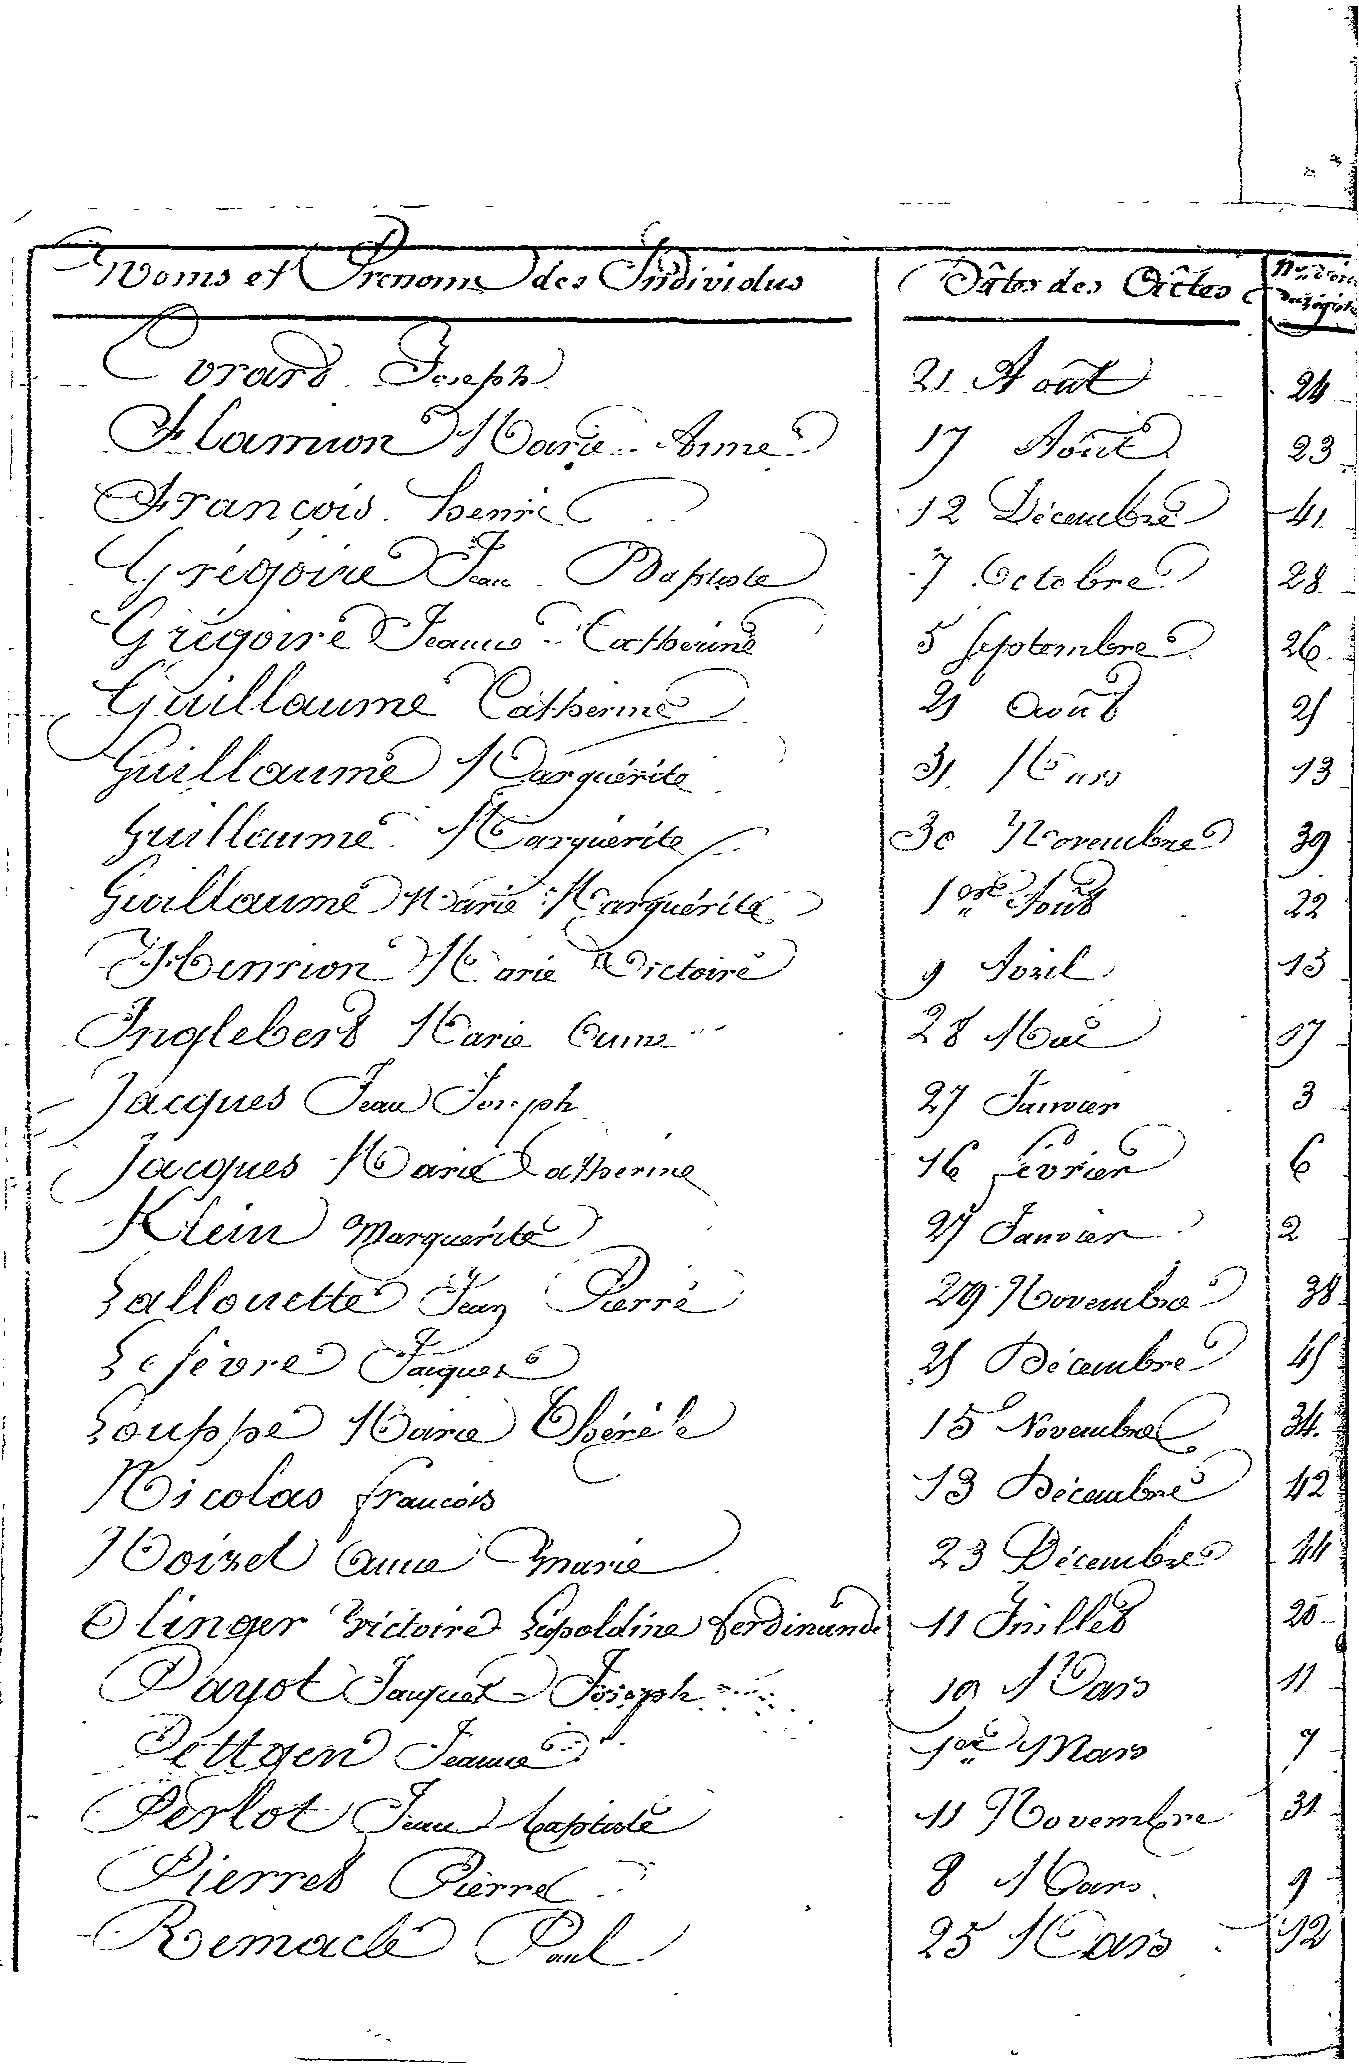 Noms et Prenoms des Individus Dâtes des Actes
Evrard Joseph 21 Août 24
Flamion Marie Anne 17 Août 23
François henri 12 Décembre 41
Grégoire Jean Baptiste 7 Octobre 28
Grégoire Jeanne Catherine 5 Septembre 26
Guillaume Catherine 21 Août 25
Guillaume Marguérite 31 Mars 13
Guillaume Marguérite 30 Novembre 39
Guillaume Marie Marguérite 1er Août 22
Henrion Marie Victoire 9 Avril 15
Inglebert Marie Anne 28 Mai 17
Jacques Jean Joseph 27 Janvier 3
Jacques Marie Catherine 16 février 6
Klein Marguérite 27 Janvier 2
Lallouette Jean Pierre 29 Novembre 38
Lefèvre Jacques 25 Décembre 45
Louppe Marie Thérèse 15 Novembre 34
Nicolas francois 13 Décembre 42
Noizet Anne Marie 23 Décembre 44
Olinger Victoire Léopoldine ferdinande 11 Juillet 20
Payot Jacques Joseph 19 Mars 11
Pettgen Jeanne 1er Mars 7
Perlot Jean baptiste 11 Novembre 31
Pierret Pierre 8 Mars 9
Remacle Paul 25 Mars 12